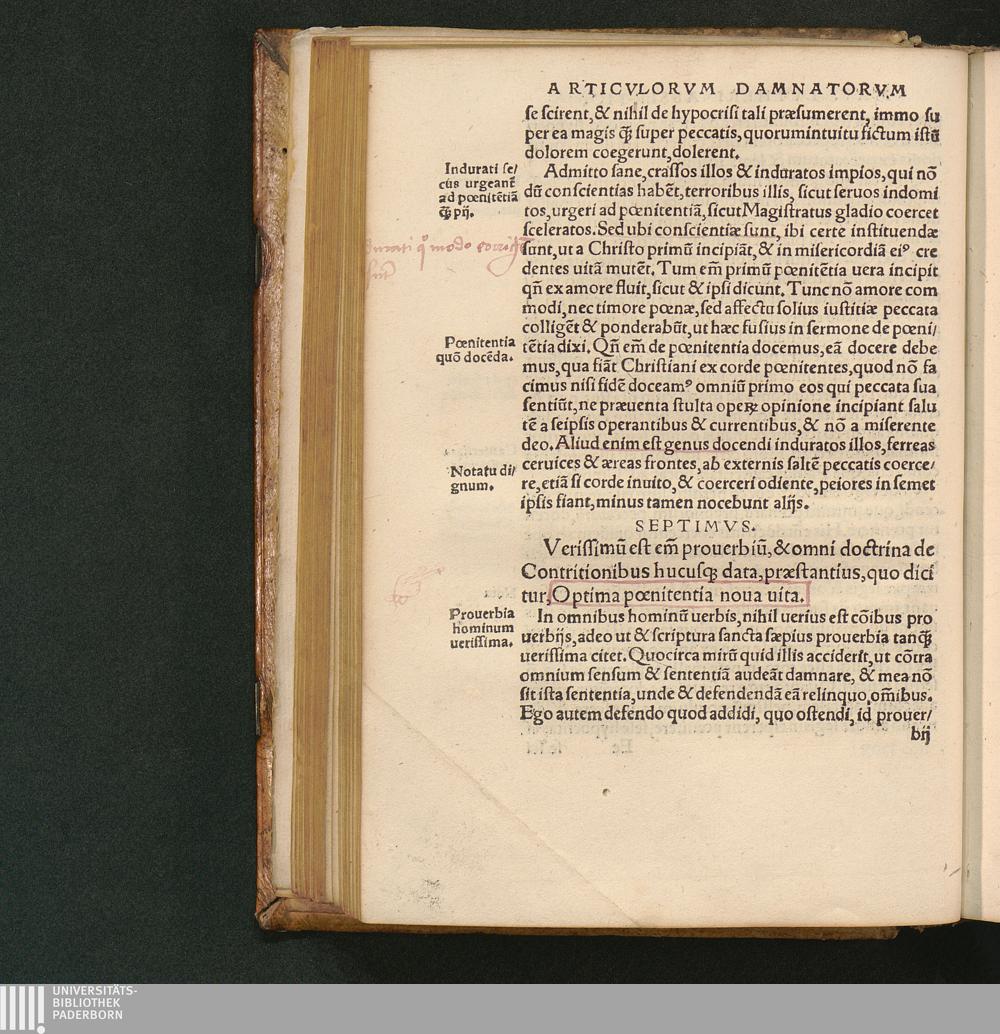 ARTICVLORVM DAMNATORVM
se scirent, & nihil de hypocrisi tali præsumerent, immo su
per ea magis q̃ super peccatis, quorum intuitu fictum istũ
dolorem coegerunt, dolerent.
Indurati se/
cũs urgeant̃
ad pœnitẽtiã
q̃ pij.
Admitto sane, crassos illos & induratos impios, qui nõ
dũ conscientias habẽt, terroribus illis, sicut seruos indomi
tos, urgeri ad pœnitentiã, sicut Magistratus gladio coercet
sceleratos. Sed ubi conscientiæ sunt, ibi certe instituendæ
sunt, ut a Christo primũ incipiãt, & in misericordiã eiꝰ cre
dentes uitã mutẽt. Tum em̃ primũ pœnitẽtia uera incipit
qñ ex amore fluit, sicut & ipsi dicunt. Tunc nõ amore com
modi, nec timore pœnæ, sed affectu solius iustitiæ peccata
colligẽt & ponderabũt, ut hæc fusius in sermone de pœni/
Pœnitentia
quõ docẽda.
tẽtia dixi. Qñ em̃ de pœnitentia docemus, eã docere debe
mus, qua fiãt Christiani ex corde pœnitentes, quod nõ fa
cimus nisi fidẽ doceamꝰ omniũ primo eos qui peccata sua
sentiũt, ne præuenta stulta opeꝝ opinione incipiant salu
tẽ a seipsis operantibus & currentibus, & nõ a miserente
deo. Aliud enim est genus docendi induratos illos, ferreas
Notatu di/
gnum.
ceruices & æreas frontes, ab externis saltẽ peccatis coerce/
re, etiã si corde inuito, & coerceri odiente, peiores in semet
ipsis fiant, minus tamen nocebunt alijs.
SEPTIMVS.
Verissimũ est em̃ prouerbiũ, & omni doctrina de
Contritionibus hucusꝗ data, præstantius, quo dici
tur, Optima pœnitentia noua uita.
Prouerbia
hominum
uerissima.
In omnibus hominũ uerbis, nihil uerius est cõibus pro
uerbijs, adeo ut & scriptura sancta sæpius prouerbia tanq̃
uerissima citet. Quocirca mirũ quid illis acciderit, ut cõtra
omnium sensum & sententiã audeãt damnare, & mea nõ
sit ista sententia, unde & defendendã eã relinquo, om̃ibus.
Ego autem defendo quod addidi, quo ostendi, id prouer/
bij
UNIVERSITÄTS-
BIBLIOTHEK
PADERBORN